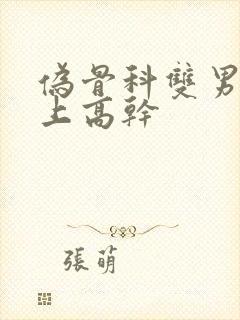 偽骨科雙男
上高幹
張萌